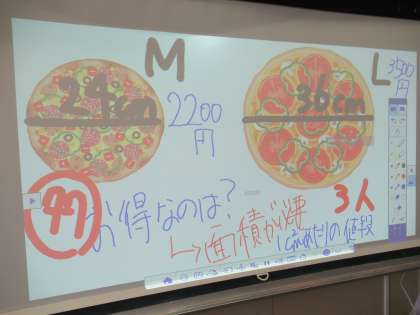 M
L
24cm
2200円
36cm
3500円
お得なのは?
3人
↳面積が
1c㎡あたりの値段